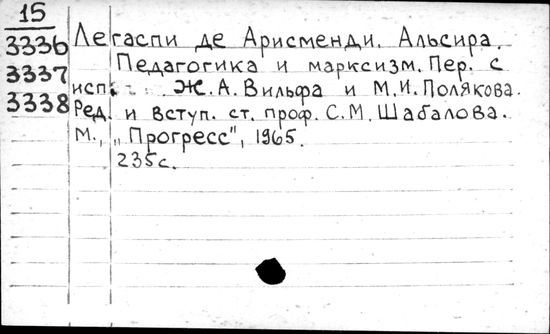 15
3336 Легаспи де Арисменди, Альсира.
3337 Педагогика и марксизм. Пер. с
3338 исп. Ж.А. Вильфа и М.И. Полякова.
Ред. и вступ. ст. проф. С.М. Шабалова.
М., „Прогресс", 1965.
235с.